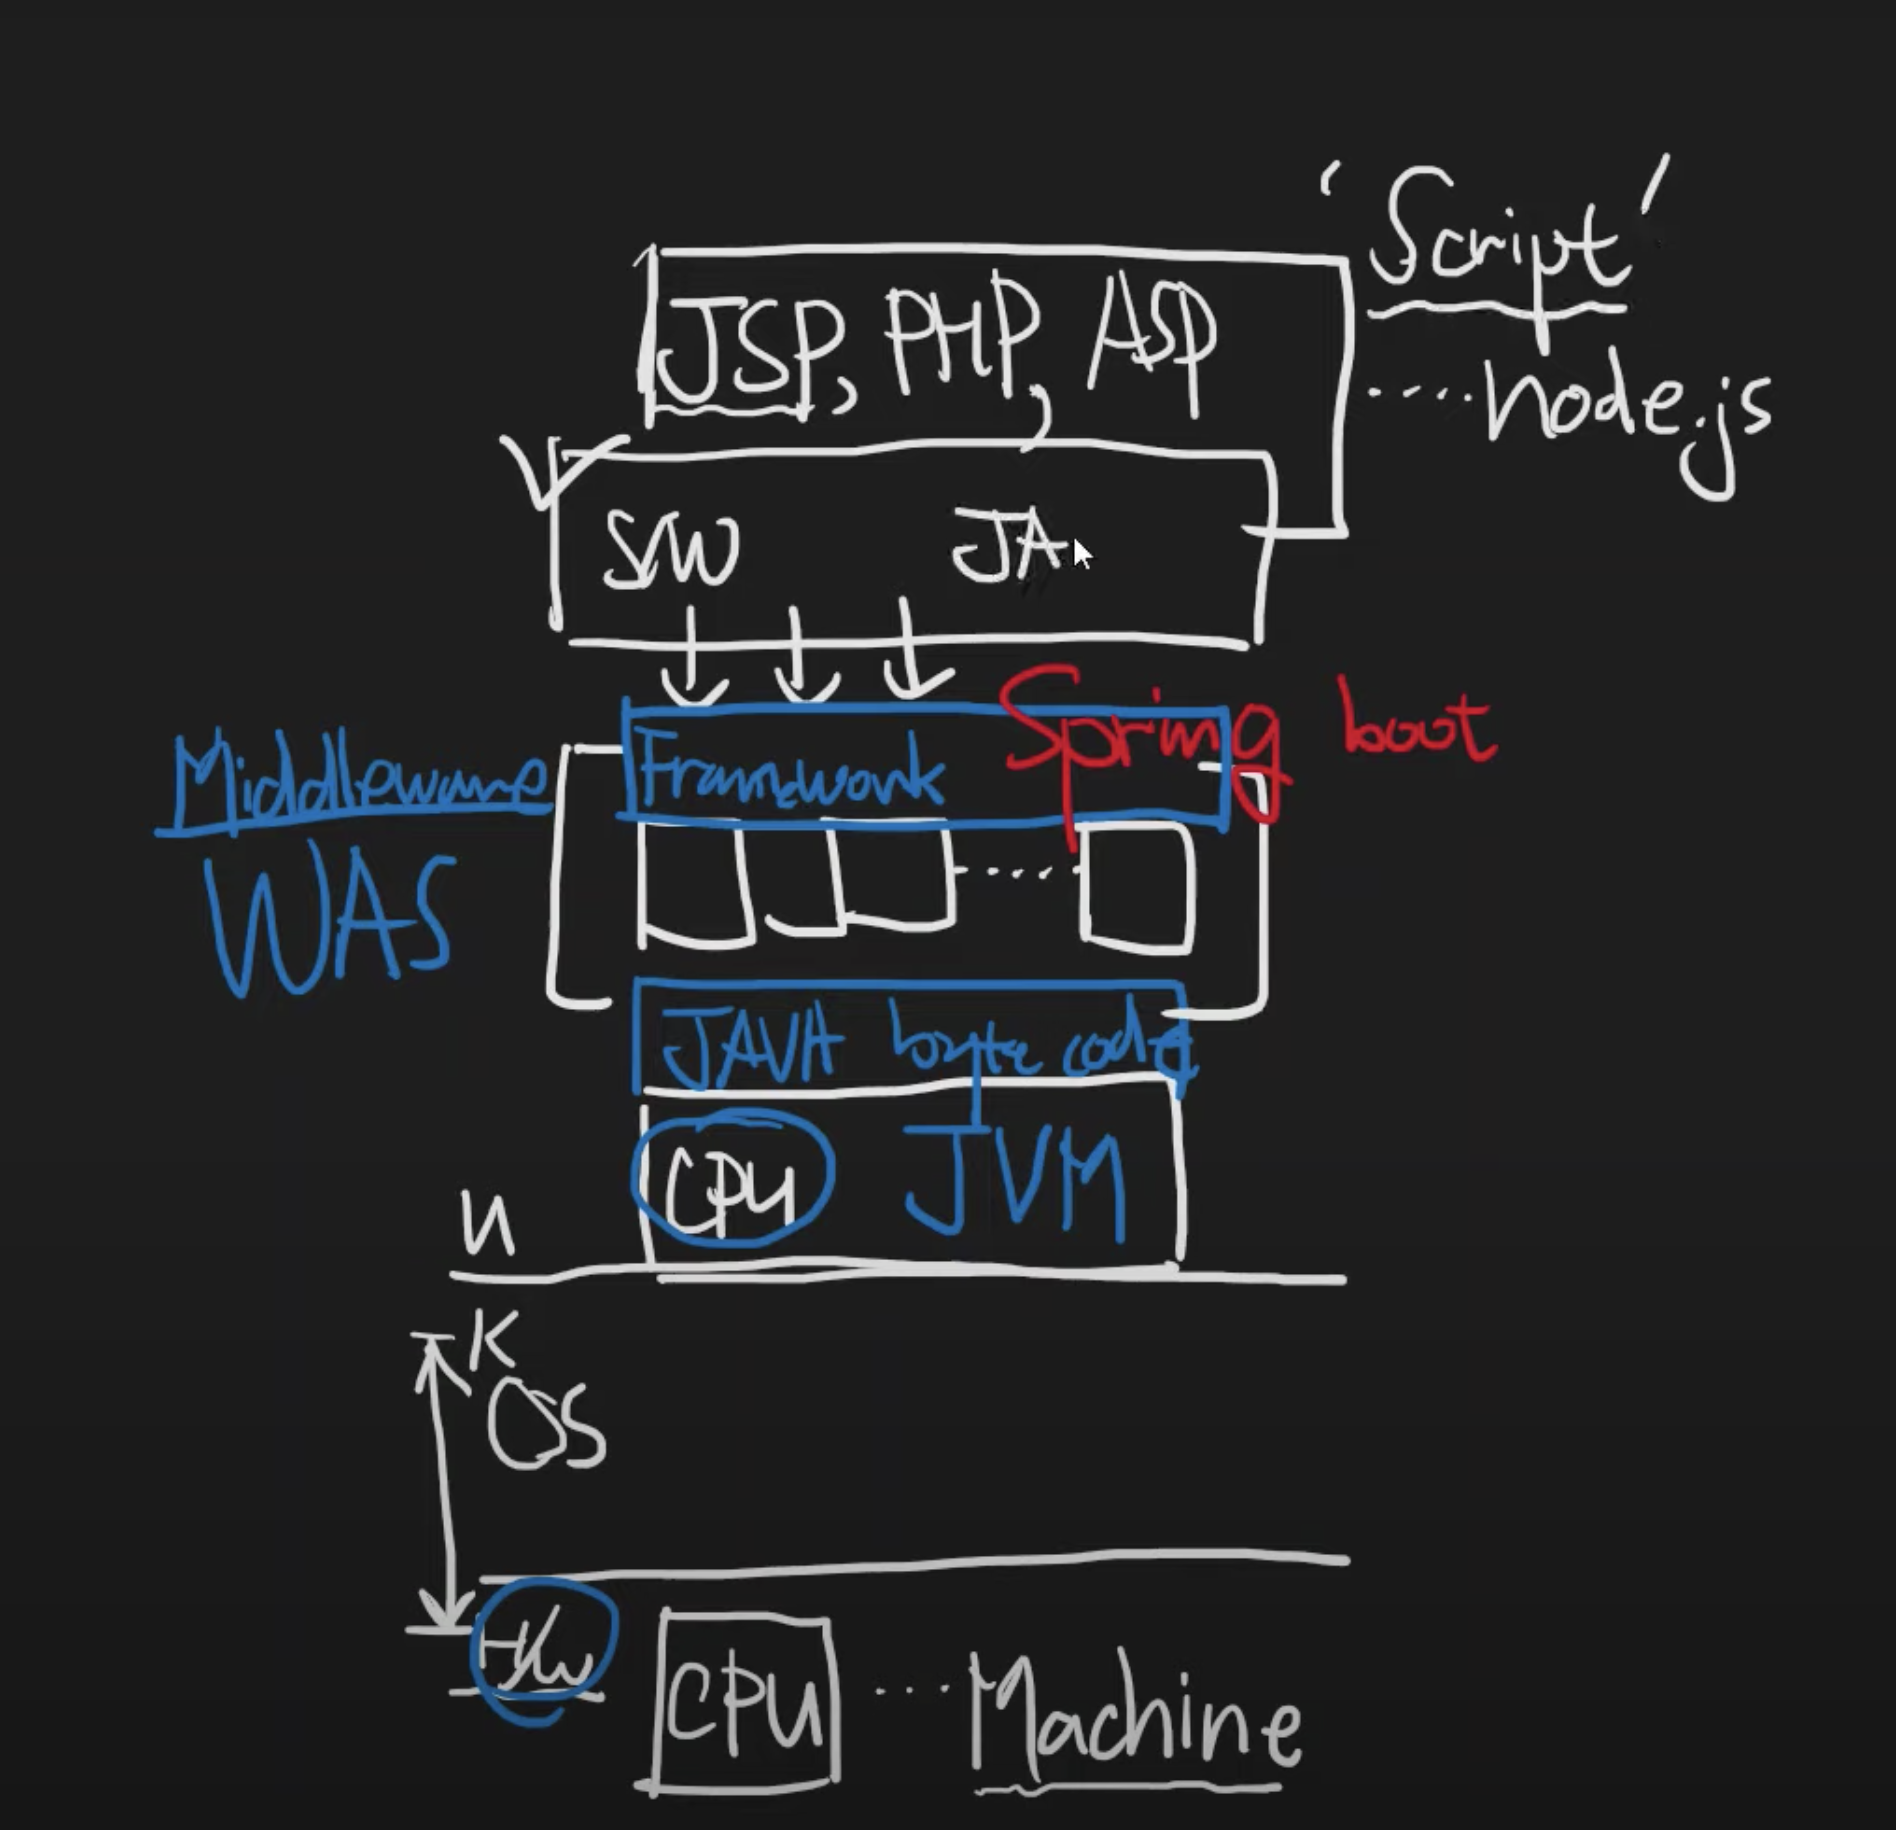 'Script'
JSP, PHP, ASP
....node.js
SW JA
Spring boot
Middleware
Framework
WAS
JAVA byte code
CPU JVM
U
K
OS
H/W
CPU ... Machine